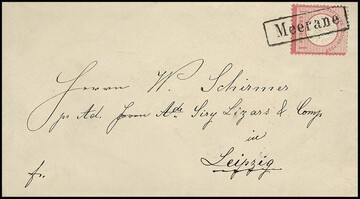 Meerane
Herrn W. Schirmer
pr Ad. Herrn Ade Siry Lizars & Comp
in
Leipzig
fr.